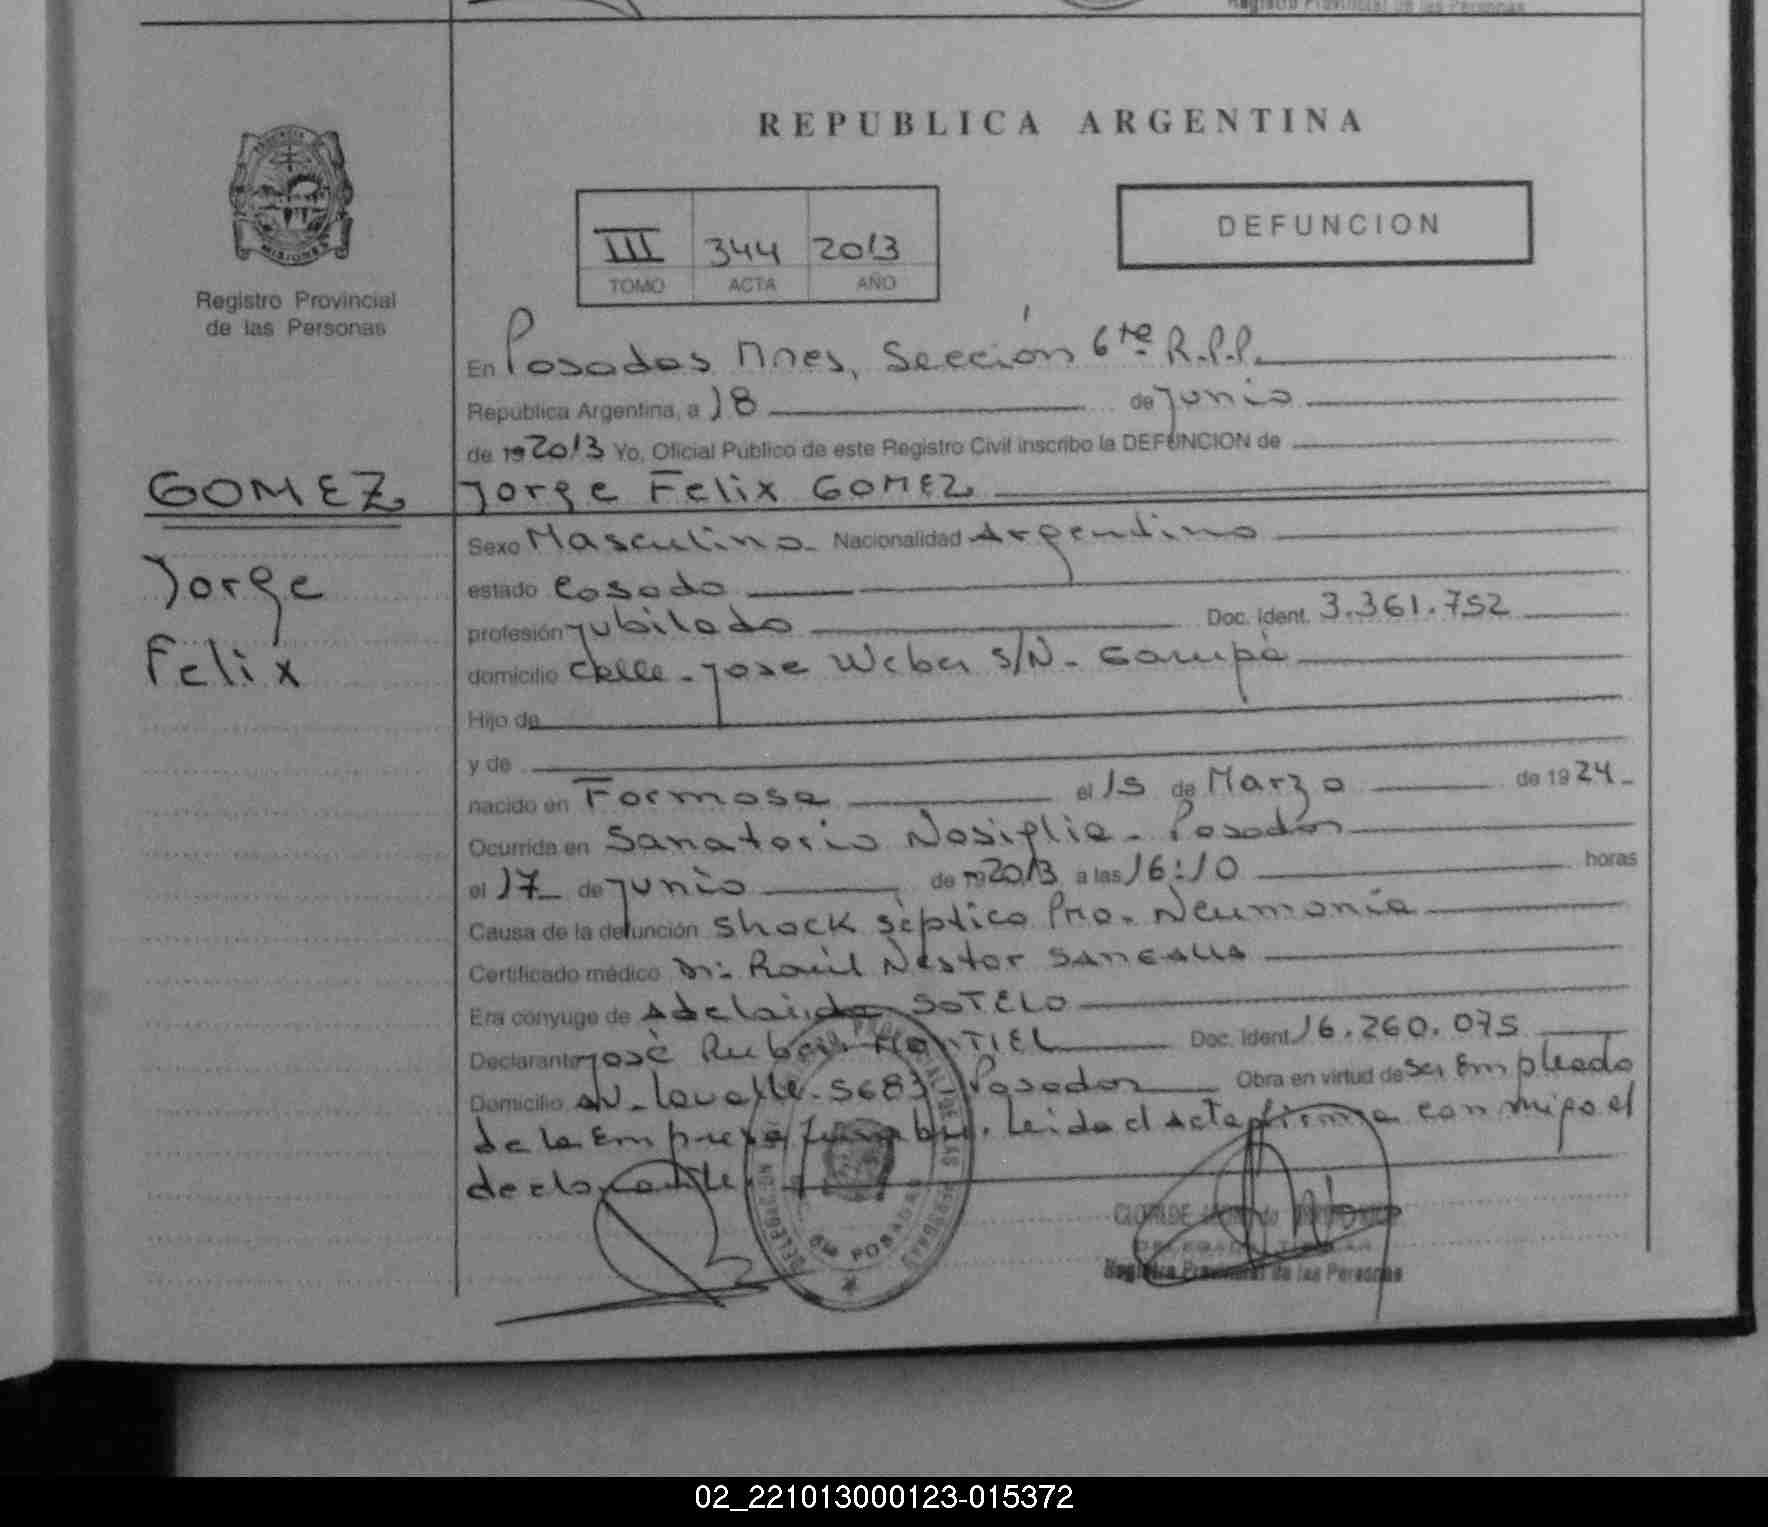 Registro Provincial de las Personas
REPUBLICA ARGENTINA
MISIONES
Registro Provincial
de las Personas
III 344 2013
TOMO ACTA AÑO
DEFUNCION
En Posadas Mnes, Sección 6ta R.P.P.
República Argentina, a 18 de junio
de 19 2013 Yo, Oficial Público de este Registro Civil inscribo la DEFUNCION de
GOMEZ
Jorge Felix GOMEZ
Jorge
Felix
Sexo Masculino - Nacionalidad Argentino
estado Casado
profesión jubilado Doc. Ident. 3.361.752
domicilio Calle - jose Weber S/N - Garupá
Hijo de
y de
nacido en Formosa el 15 de Marzo de 19 24 -
Ocurrida en Sanatorio Nosiglia - Posadas
el 17 de junio de 19 2013 a las 16:10 horas
Causa de la defunción Shock séptico Pno - Neumonía
Certificado médico Dr: Raúl Néstor SANGALLI
Era cónyuge de Adelaida SOTELO
Declarante José Ruben MONTIEL Doc. Ident. 16.260.075
Domicilio AV - Lavalle - 5683 Posadas Obra en virtud de ser Empleado
de la Empresa funebre. Leida el Acta firma con migo el
declarante.
POSADAS
Registro Provincial de las Personas
02_221013000123-015372